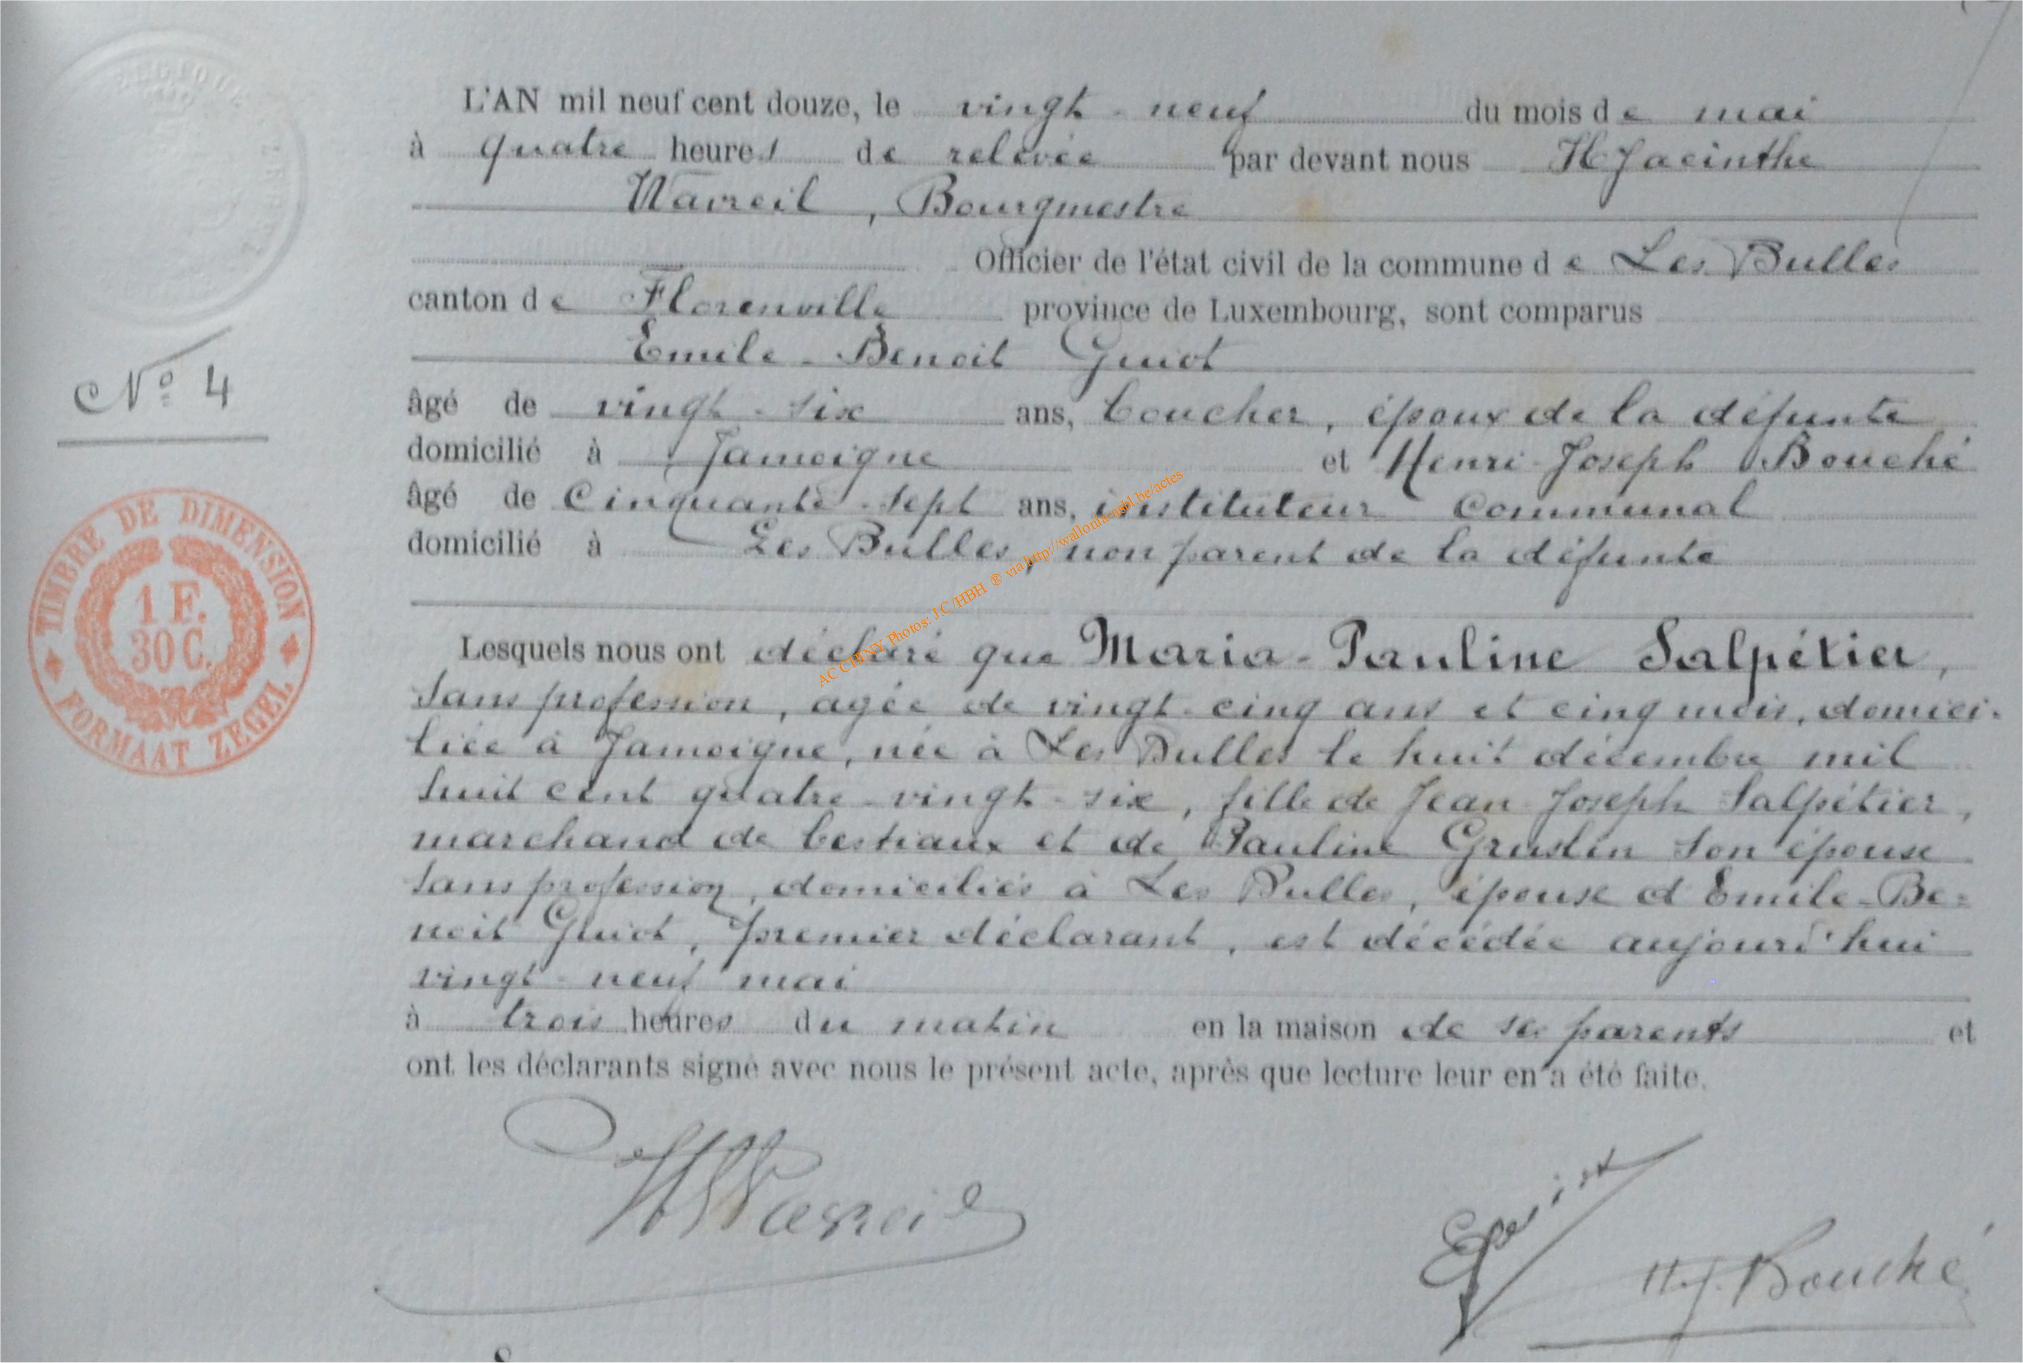 L'AN mil neuf cent douze, le vingt-neuf du mois de mai
à quatre heures de relevée par devant nous Hyacinthe
Wavreil, Bourgmestre
Officier de l'état civil de la commune de Les Bulles
canton de Florenville province de Luxembourg, sont comparus
Emile-Benoit Guiot
N° 4
âgé de vingt-six ans, boucher, époux de la défunte
domicilié à Jamoigne et Henri-Joseph Bouché
âgé de Cinquante-sept ans, instituteur communal
domicilié à Les Bulles, non parent de la défunte
TIMBRE DE DIMENSION
1 F.
30 C.
FORMAAT ZEGEL
AC CHINY Photos: JC/HBH ® via http://wallonia-asbl.be/actes
Lesquels nous ont déclaré que Maria-Pauline Salpétier,
sans profession, agée de vingt-cinq ans et cinq mois, domici-
liée à Jamoigne, née à Les Bulles le huit décembre mil
huit cent quatre-vingt-six, fille de Jean-Joseph Salpétier,
marchand de bestiaux et de Pauline Gruslin son épouse
sans profession, domiciliés à Les Bulles, épouse d'Emile-Be-
noit Guiot, premier déclarant, est décédée aujourd'hui
vingt-neuf mai
à trois heures du matin en la maison de ses parents et
ont les déclarants signé avec nous le présent acte, après que lecture leur en a été faite.
H Wavreil
H. J. Bouché